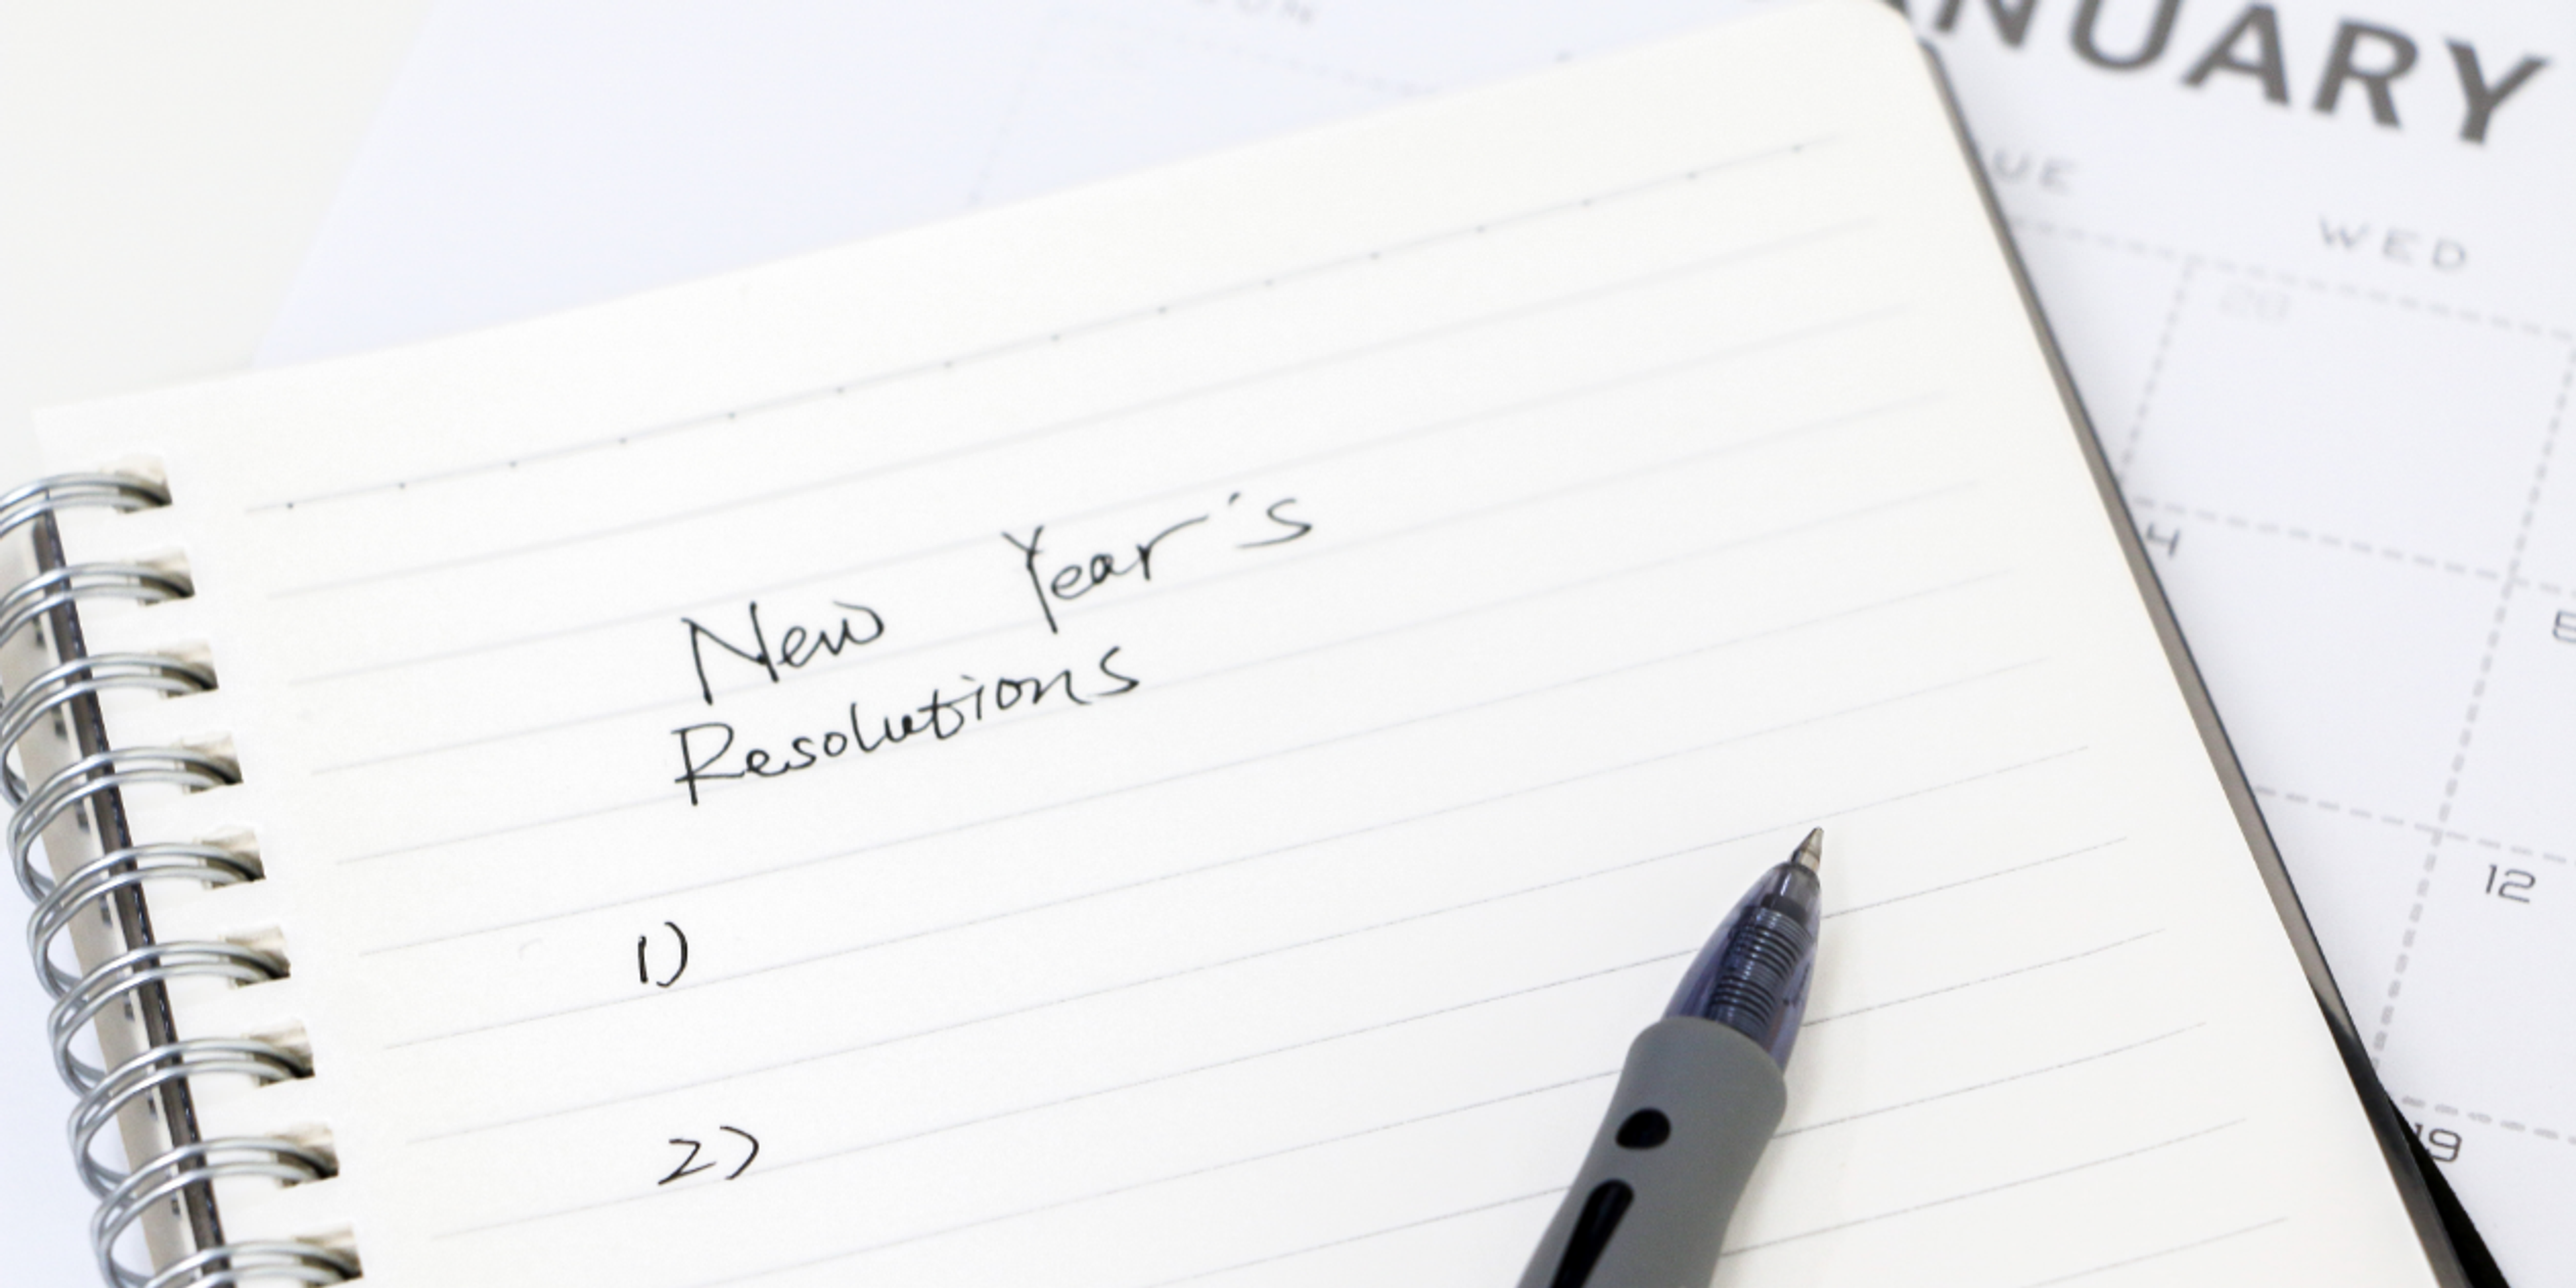 NUARY
UE
WED
28
4
12
19
New Year's
Resolutions
1)
2)